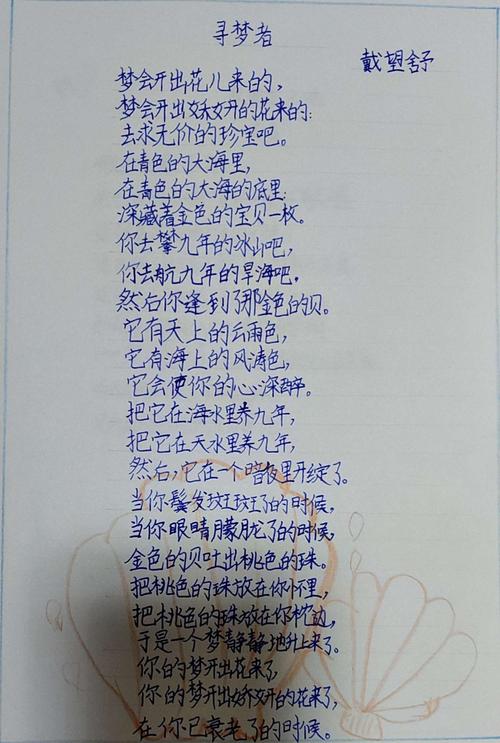 寻梦者
戴望舒
梦会开出花儿来的,
梦会开出娇妍的花来的:
去求无价的珍宝吧。
在青色的大海里,
在青色的大海的底里:
深藏着金色的宝贝一枚。
你去攀九年的冰山吧,
你去航九年的旱海吧,
然后你逢到了那金色的贝。
它有天上的云雨色,
它有海上的风涛色,
它会使你的心深醉。
把它在海水里养九年,
把它在天水里养九年,
然后,它在一个暗夜里开绽了。
当你鬓发斑斑了的时候,
当你眼睛朦胧了的时候,
金色的贝吐出桃色的珠。
把桃色的珠放在你怀里,
把桃色的珠放在你枕边,
于是一个梦静静地升上来了。
你的梦开出花来了,
你的梦开出娇妍的花来了,
在你已衰老了的时候。